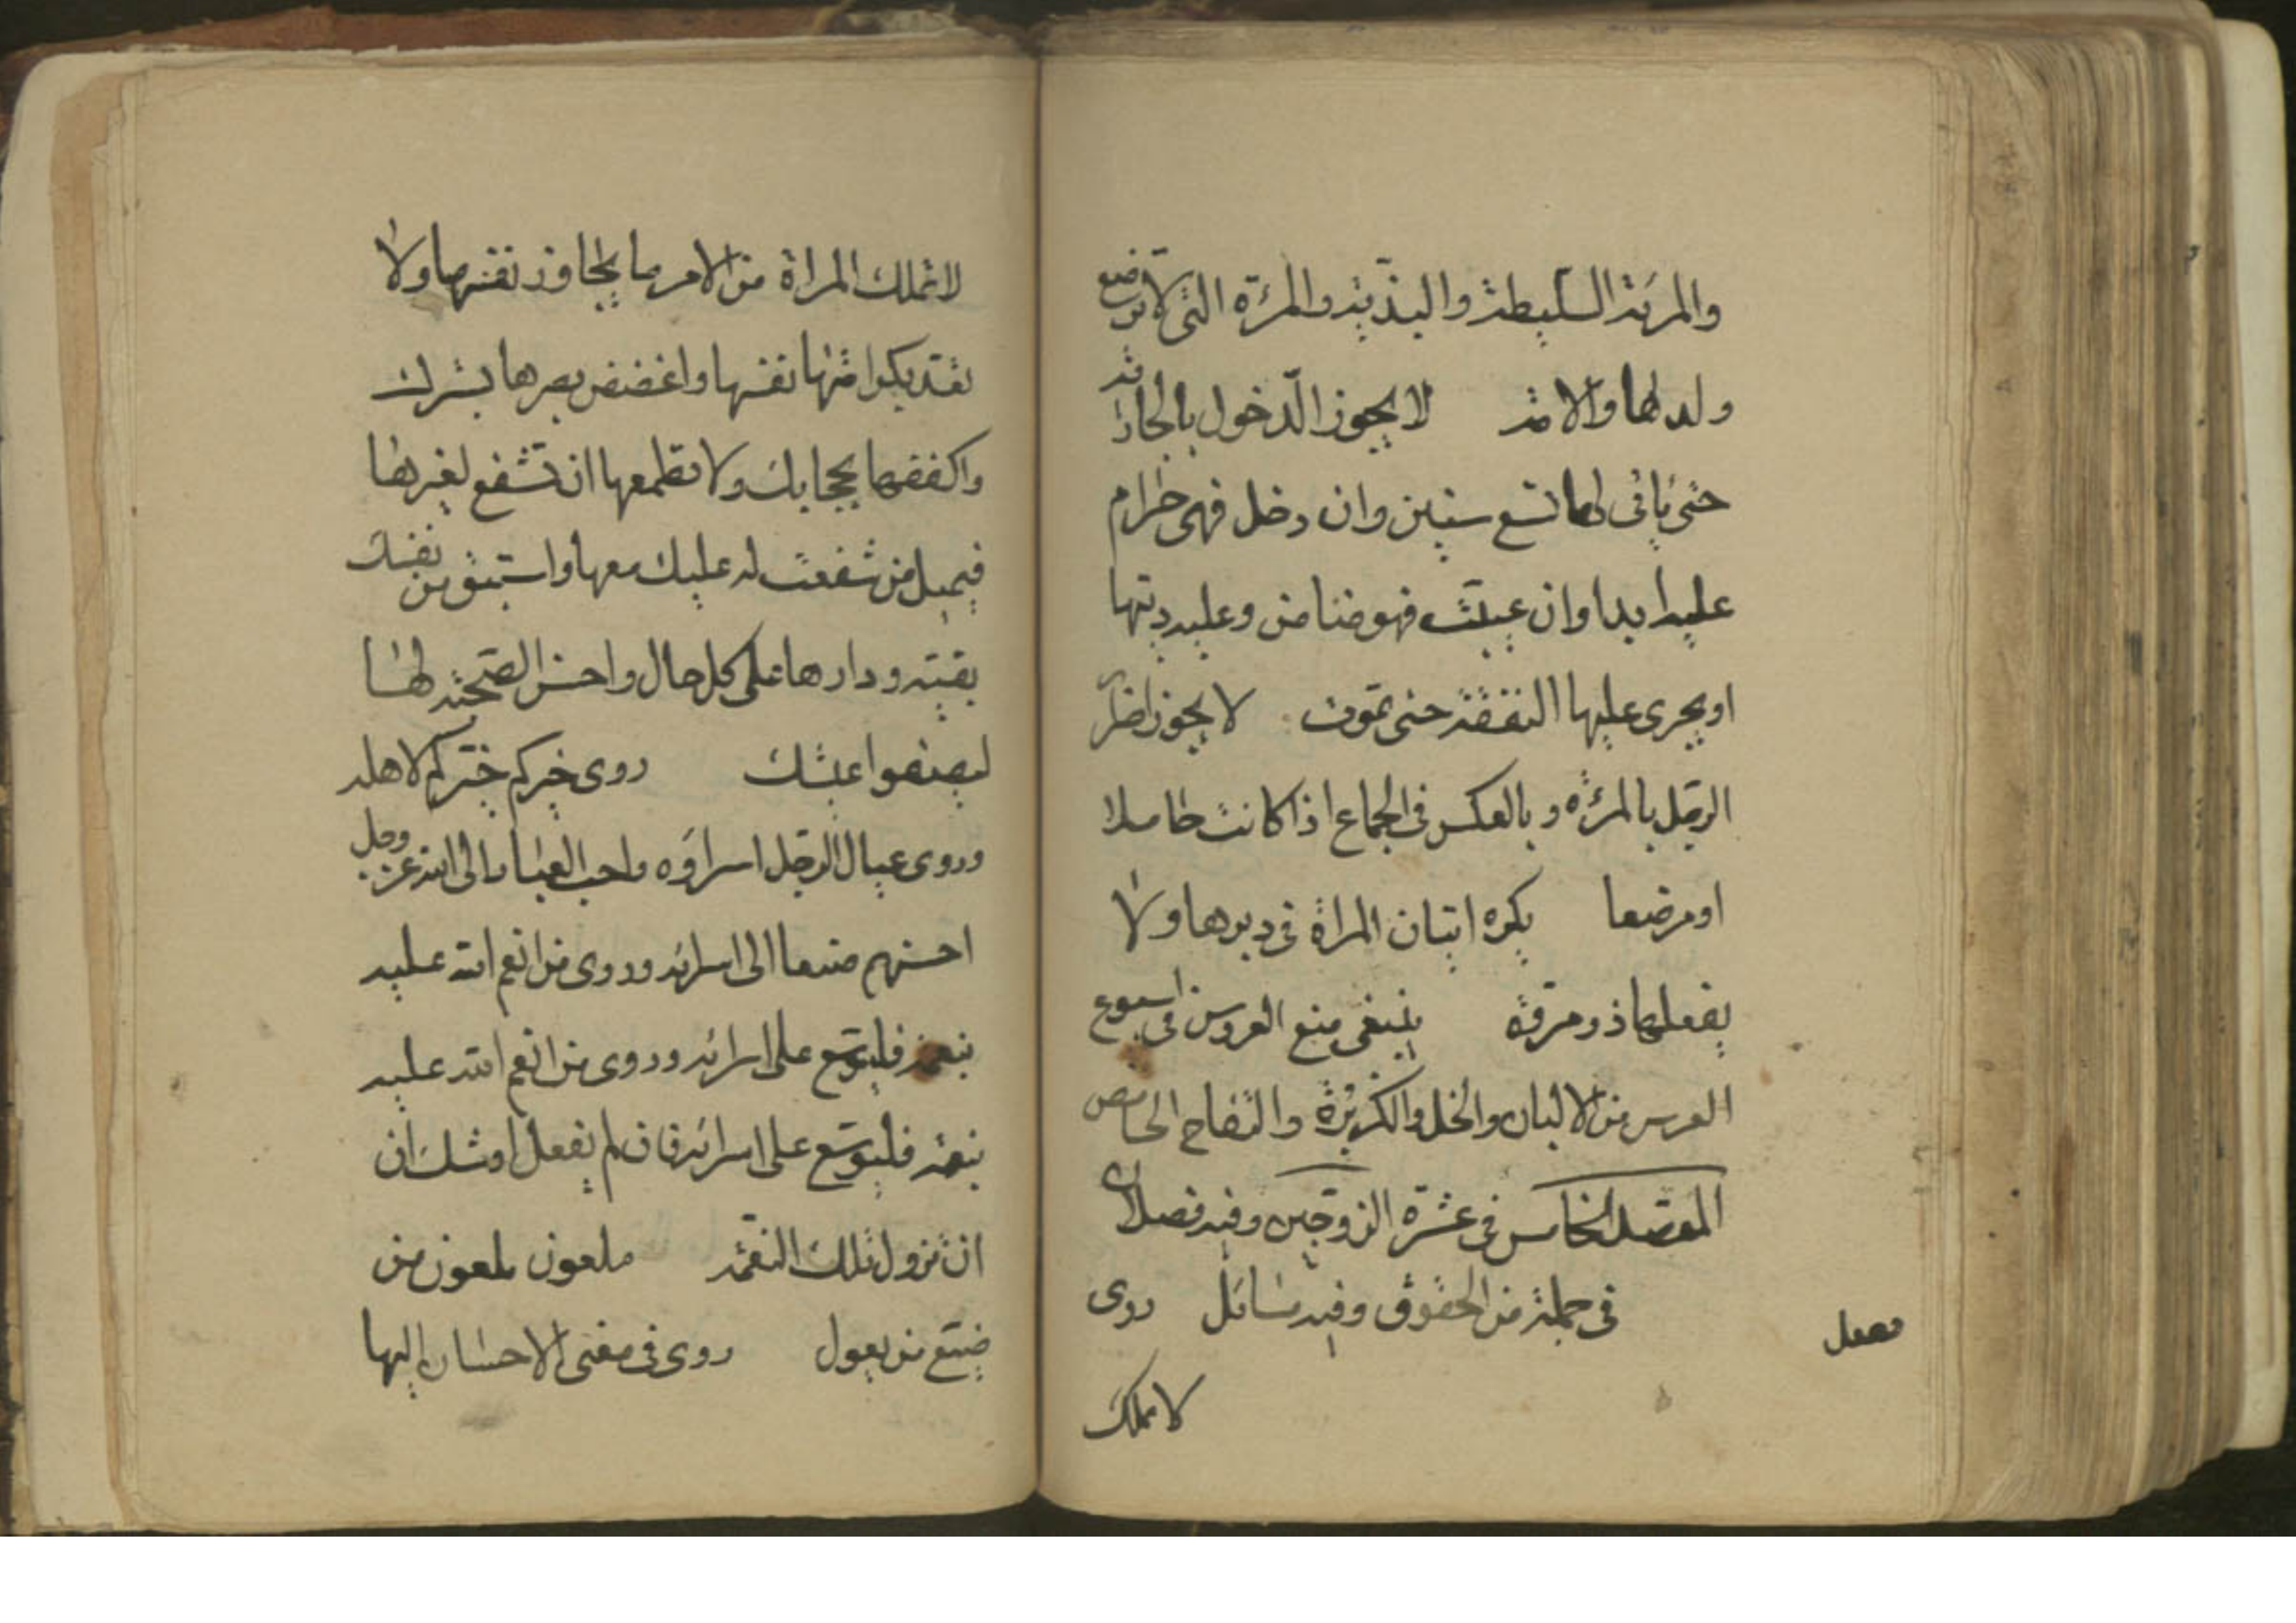 والمرئة السليطة والبذية والمرئة التى لا توضع
ولدلها والامة لا يجوز الدخول بالجارية
حتى يأتى لها تسع سنين وان دخل فهى حرام
عليه ابدا وان عيبت فهو ضامن وعليه ديتها
او يجرى عليها النفقة حتى تموت لا يجوز اضرار
الرجل بالمرئة و بالعكس فى الجماع اذا كانت حاملا
او مرضعا يكره اتيان المراة فى دبرها ولا
يفعلها ذو مروة ينبغى منع العروس فى اسبوع
العرس من الالبان والخل والكزبرة والتفاح الحامض
المقصد الخامس فى عشرة الزوجين وفيه فصلان
فصل
فى جملة من الحقوق وفيه مسائل روى
لا تملك
لا تملك المراة من الامر ما يجاوز نفسها ولا
تعد بكرامتها نفسها واغضض بصرها بسترك
واكففها بحجابك ولا تطمعها ان تشفع لغيرها
فيميل من شفعت له عليك معها واستبق من نفسك
بقية ودارها على كل حال واحسن الصحبة لها
ليصفوا عيشك روى خيركم خيركم لاهله
وروى عيال الرجل اسراؤه واحب العباد الى الله عز وجل
احسنهم صنعا الى اسرائه وروى من انعم الله عليه
بنعمة فليوسع على اسرائه وروى من انعم الله عليه
بنعمة فليوسع على اسرائه فان لم يفعل اوشك ان
ان تزول تلك النعمة ملعون ملعون من
ضيع من يعول روى فى معنى الاحسان إليها